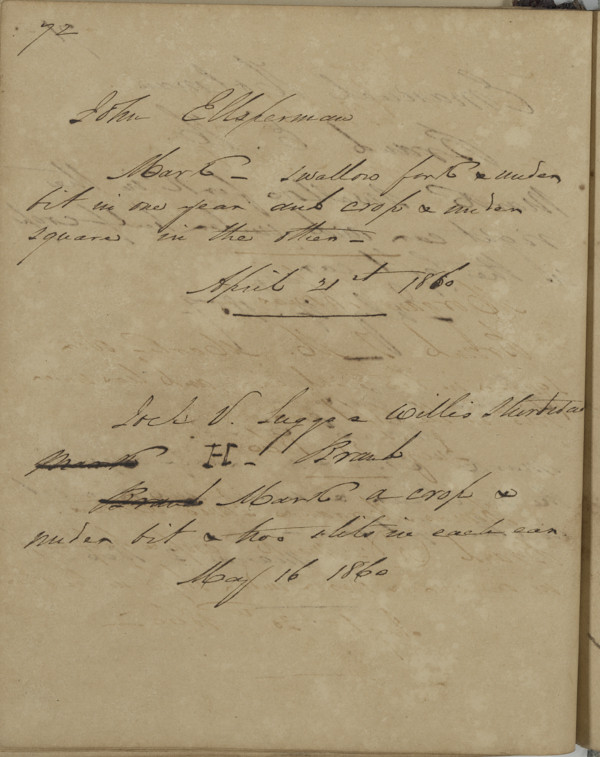 72
John Ellsperman
Mark – swallow fork & under
bit in one year and crop & under
square in the other –
April 21st 1860
V. Suggs & Willis
H – Brand
Mark a crop &
under bit & two slits in each ear.
May 16 1860